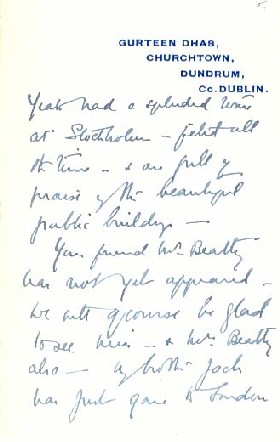 5.
GURTEEN DHAS,
CHURCHTOWN,
DUNDRUM,
Co. DUBLIN.
Yeats had a splendid time
at Stockholm – fêted all
the time – & are full of
praise of the beautiful
public buildings –
Your friend Mr. Beatty
has not yet appeared –
we will of course be glad
to see him – & Mrs Beatty
also – My brother Jack
has just gone to London